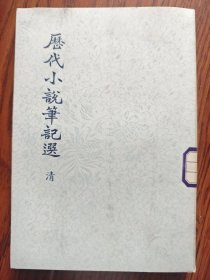 歷代小說筆記選
清